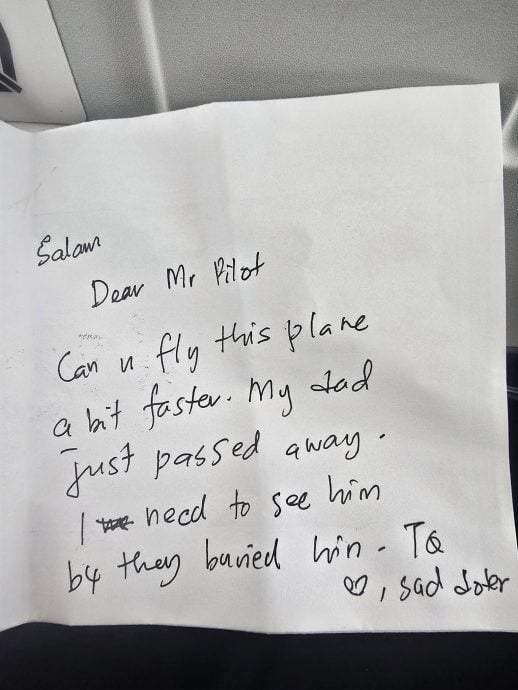 Salam
Dear Mr Pilot
Can u fly this plane
a bit faster. My dad
just passed away.
I need to see him
b4 they buried him. TQ
♡, sad doter